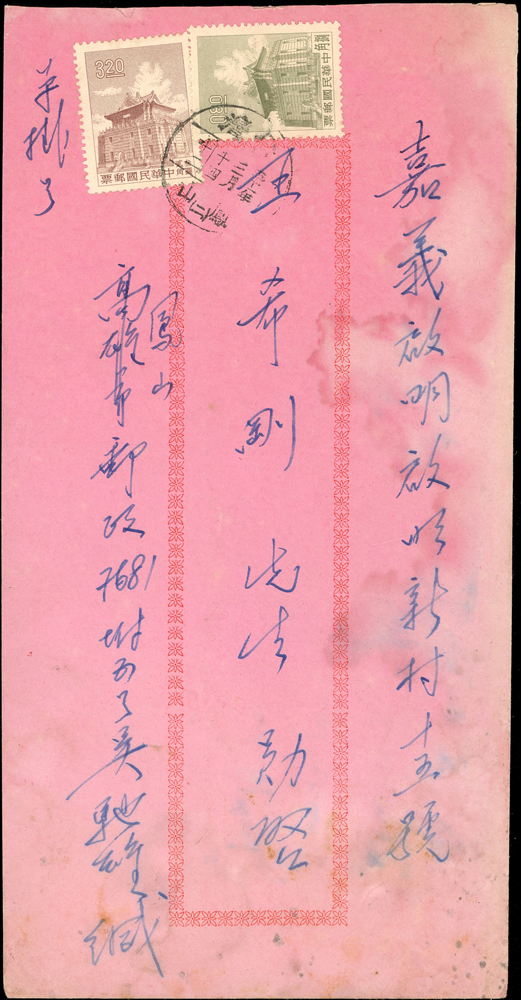 嘉義啟明啟明新村十五號
王希剛先生勛啓
鳳山
高雄市郵政7681附五了吳馳雄緘
平掛
3.20
中華民國郵票
0.80
中華民國郵票